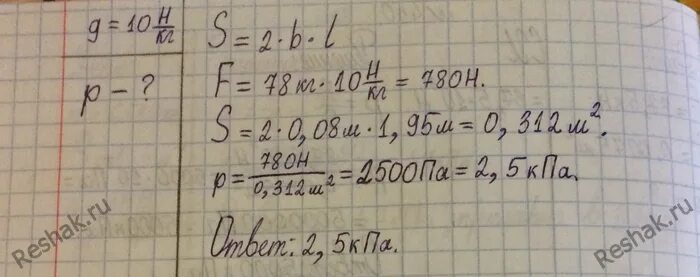 g = 10 Н/кг
p - ?
S = 2 · b · l
F = 78 кг · 10 Н/кг = 780 Н.
S = 2 · 0,08 м · 1,95 м = 0,312 м².
p = 780 Н / 0,312 м² = 2500 Па = 2,5 кПа.
Ответ: 2,5 кПа.
Reshak.ru
Reshak.ru